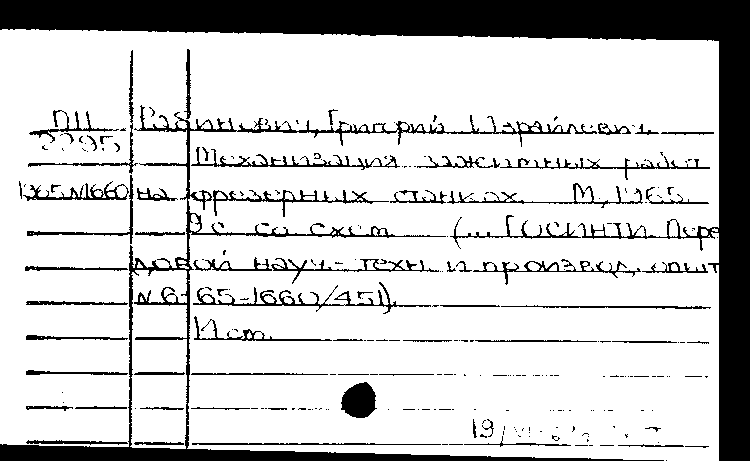 ПП Рабинович, Григорий Израйлевич.
2295
Механизация зажимных работ
1965 №1660 на фрезерных станках. М., 1965.
9 с. со схем. (... ГОСИНТИ. Пере
довой науч.-техн. и производ. опыт
№ 6-65-1660/451).
1 л. сл.
19/VI-